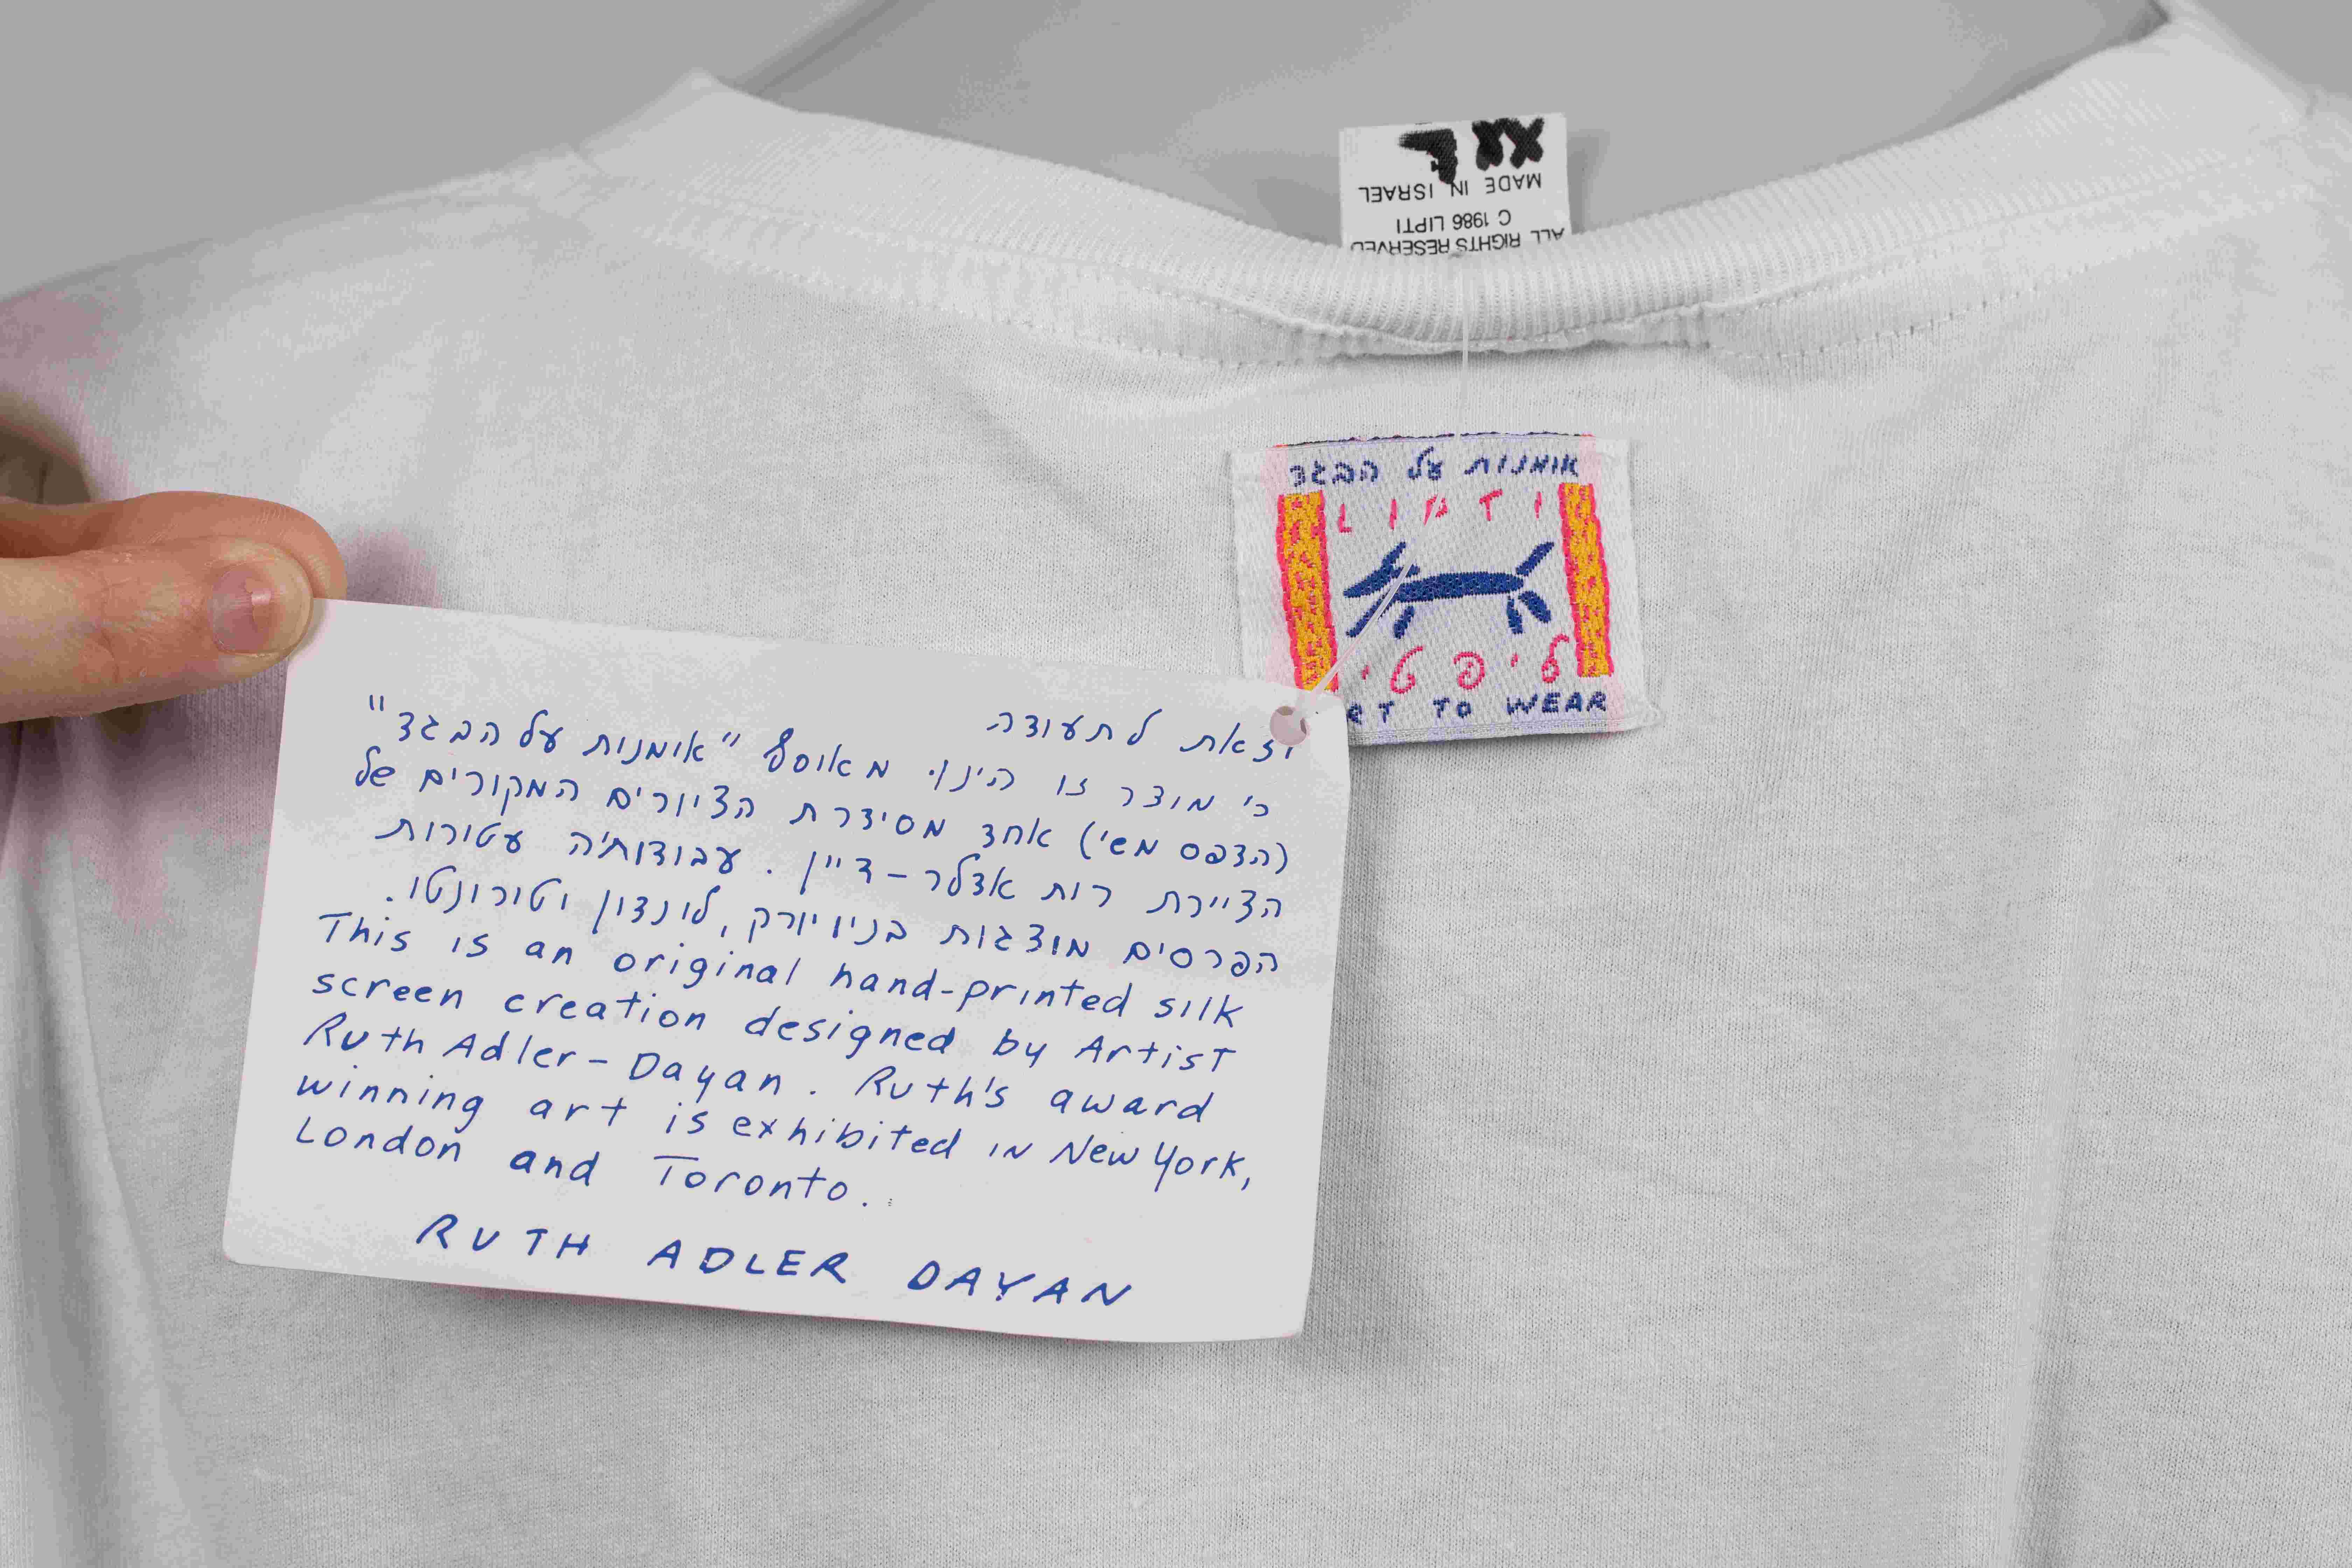 XXL
MADE IN ISRAEL
C 1986 LIPTI
ALL RIGHTS RESERVED
אומנות על הבגד
LIPTI
ליפטי
RT TO WEAR
וזאת לתעודה
כי מוצר זו הינו מאוסף "אומנות על הבגד"
(הדפס משי) אחד מסידרת הציורים המקורים של
הציירת רות אדלר-דיין. עבודותיה עטורות
הפרסים מוצגות בניו יורק, לונדון וטורונטו.
This is an original hand-printed silk
screen creation designed by Artist
Ruth Adler-Dayan. Ruth's award
winning art is exhibited in New York,
London and Toronto.
RUTH ADLER DAYAN